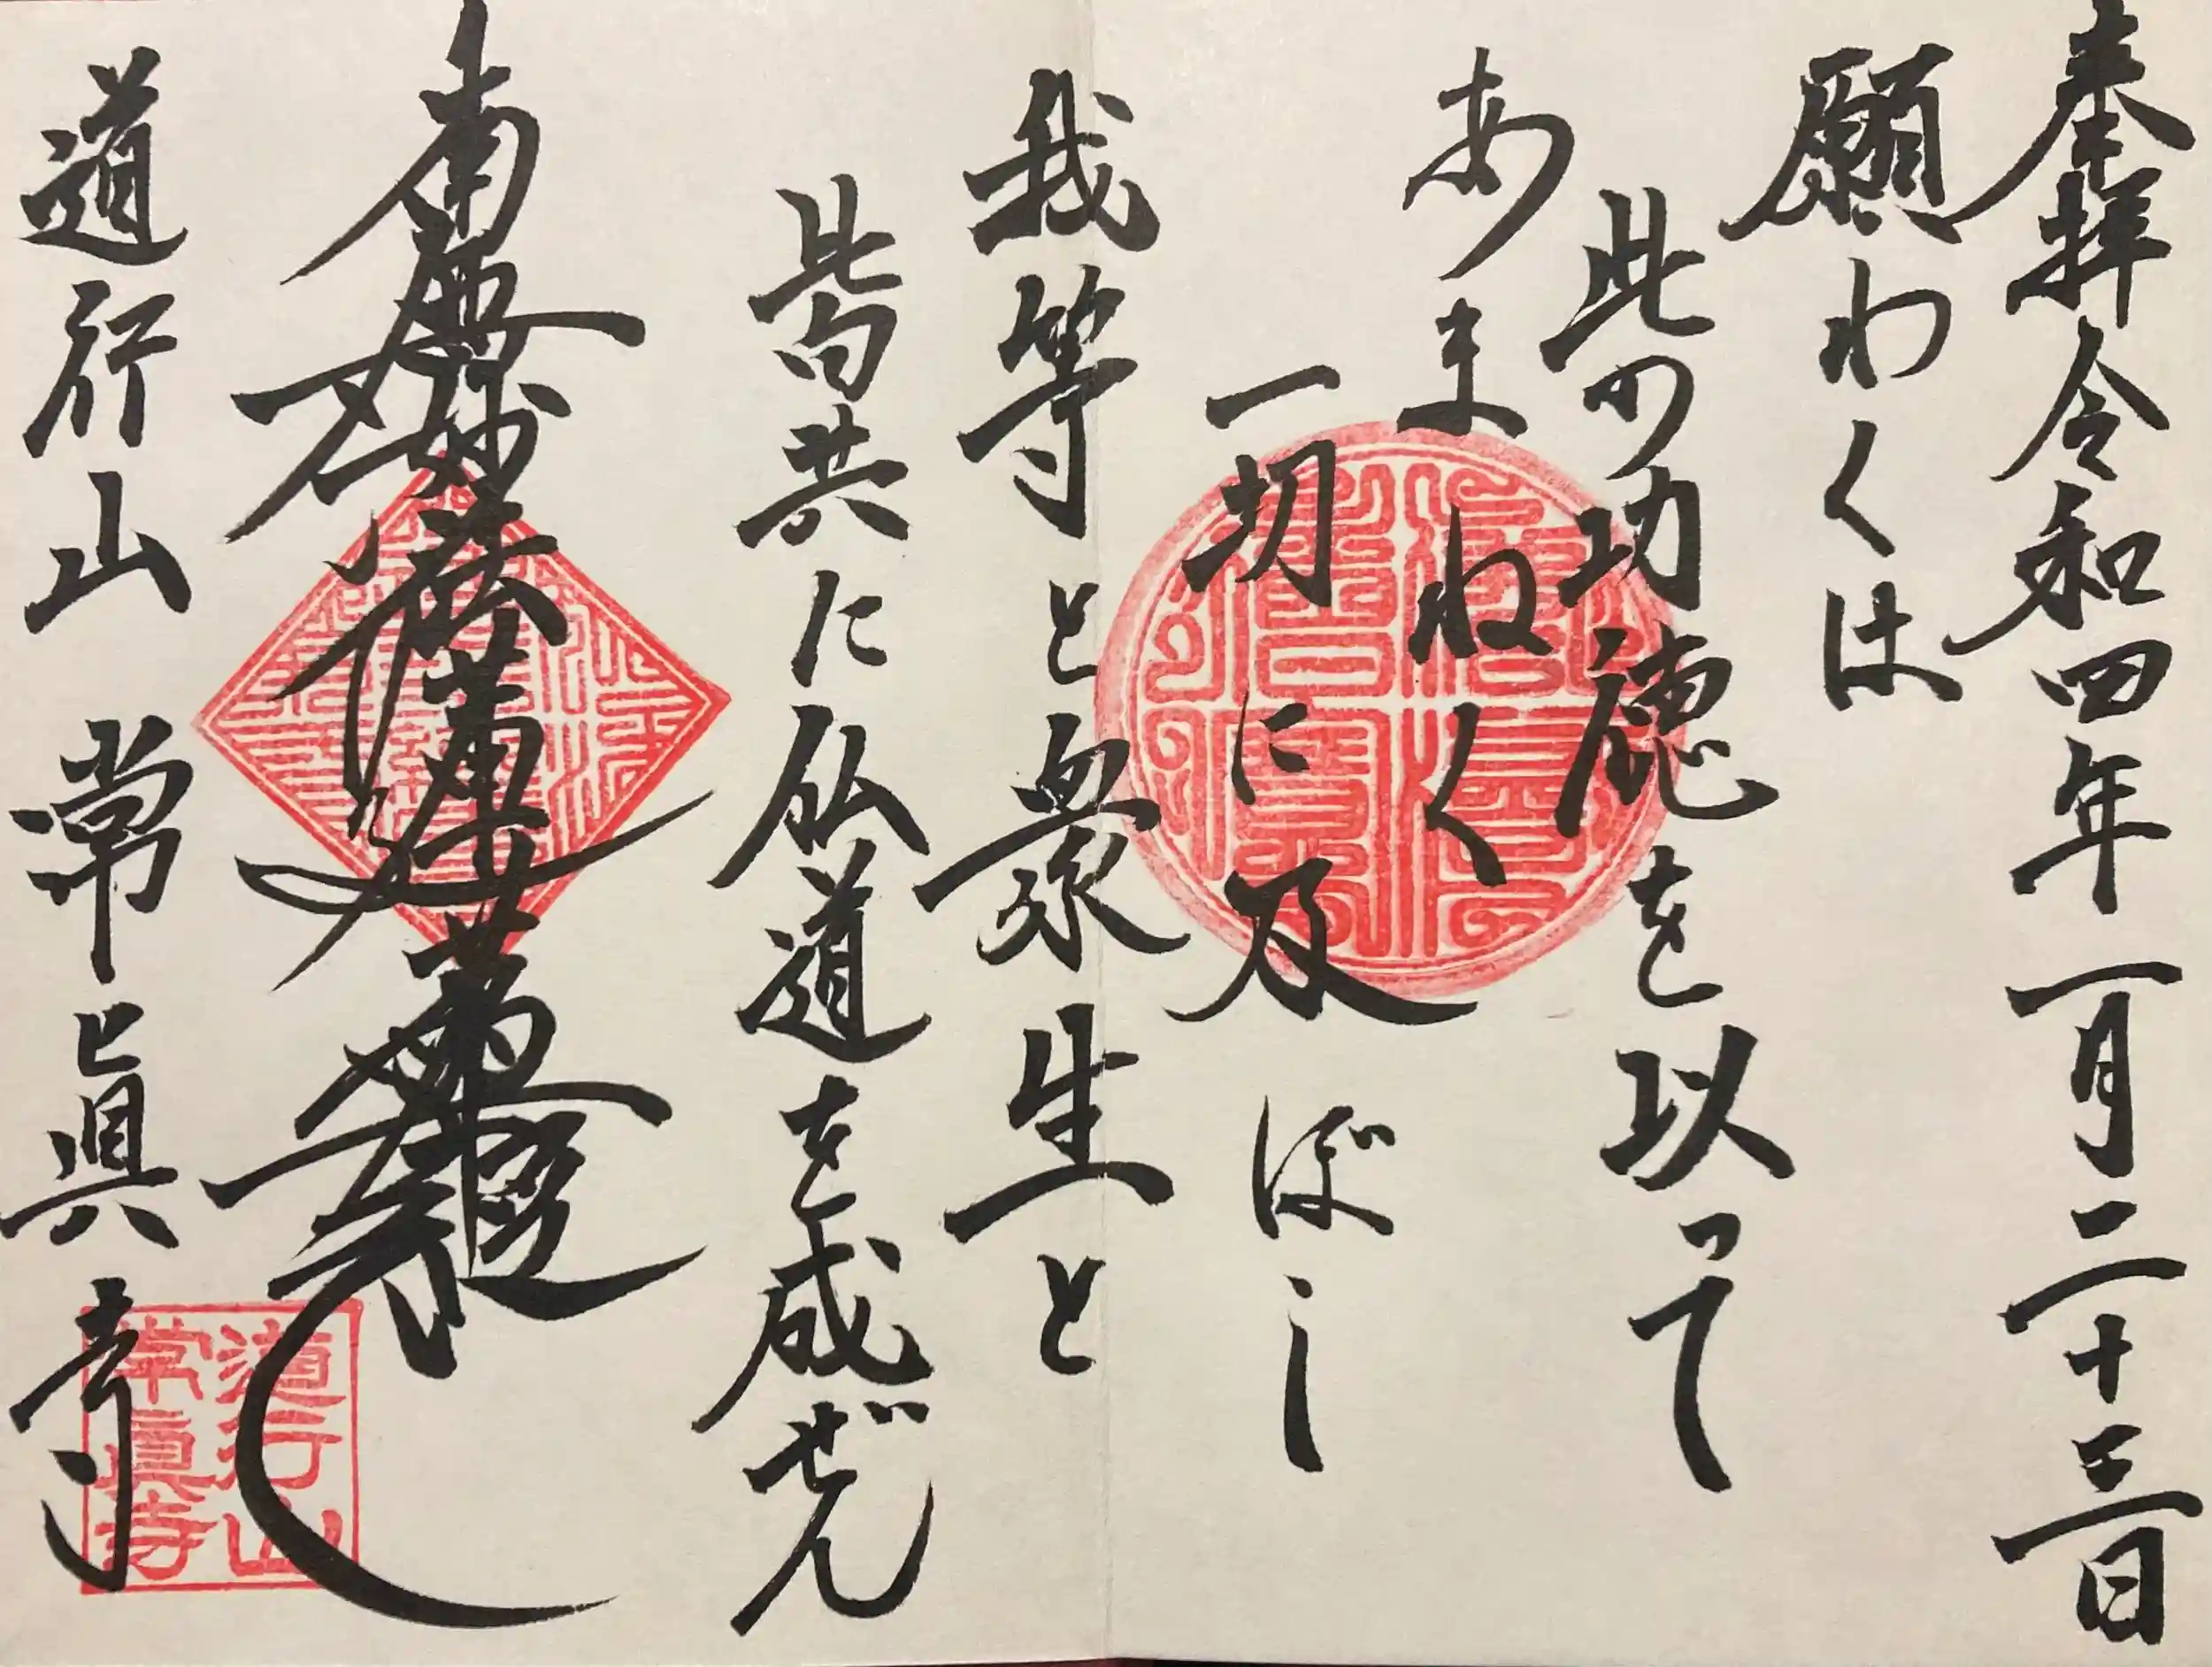 奉拝令和四年一月二十三日
願わくは
此の功徳を以って
あまねく
一切に及ぼし
我等と衆生と
皆共に仏道を成ぜん
南無妙法蓮華経
道行山 常眞寺
道行山
常眞寺